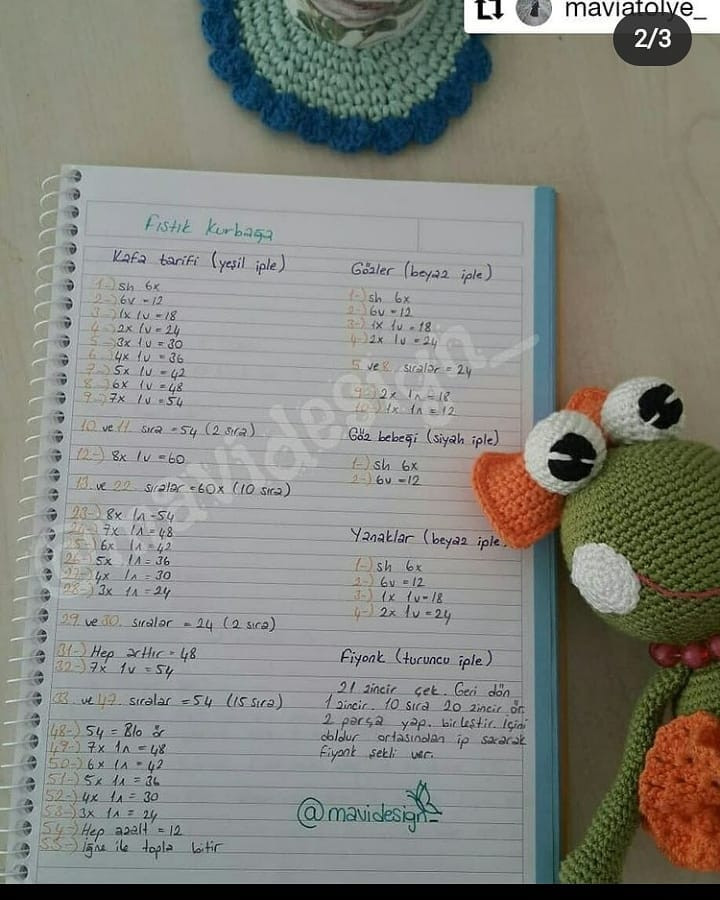 maviatolye_
2/3
Fıstık Kurbağa
Kafa tarifi (yeşil iple)
1-) sh 6x
2-) 6v = 12
3-) 1x 1v = 18
4-) 2x 1v = 24
5-) 3x 1v = 30
6-) 4x 1v = 36
7-) 5x 1v = 42
8-) 6x 1v = 48
9-) 7x 1v = 54
10 ve 11 sıra = 54 (2 sıra)
12-) 8x 1v = 60
13. ve 22. sıralar = 60x (10 sıra)
23-) 8x 1ʌ = 54
24-) 7x 1ʌ = 48
25-) 6x 1ʌ = 42
26-) 5x 1ʌ = 36
27-) 4x 1ʌ = 30
28-) 3x 1ʌ = 24
29. ve 30. sıralar = 24 (2 sıra)
31-) Hep arttır = 48
32-) 7x 1v = 54
33. ve 47. sıralar = 54 (15 sıra)
48-) 54 = Blo ör
49-) 7x 1ʌ = 48
50-) 6x 1ʌ = 42
51-) 5x 1ʌ = 36
52-) 4x 1ʌ = 30
53-) 3x 1ʌ = 24
54-) Hep azalt = 12
55-) İğne ile topla bitir
Gözler (beyaz iple)
1-) sh 6x
2-) 6v = 12
3-) 1x 1v = 18
4-) 2x 1v = 24
5 ve 8. sıralar = 24
9-) 2x 1ʌ = 18
10-) 1x 1ʌ = 12
Göz bebeği (siyah iple)
1-) sh 6x
2-) 6v = 12
Yanaklar (beyaz iple)
1-) sh 6x
2-) 6v = 12
3-) 1x 1v = 18
4-) 2x 1v = 24
Fiyonk (turuncu iple)
21 zincir çek. Geri dön
1 zincir. 10 sıra 20 zincir ör.
2 parça yap. birleştir. İçini
doldur ortasından ip sararak
fiyonk şekli ver.
@mavidesign_
@mavidesign_